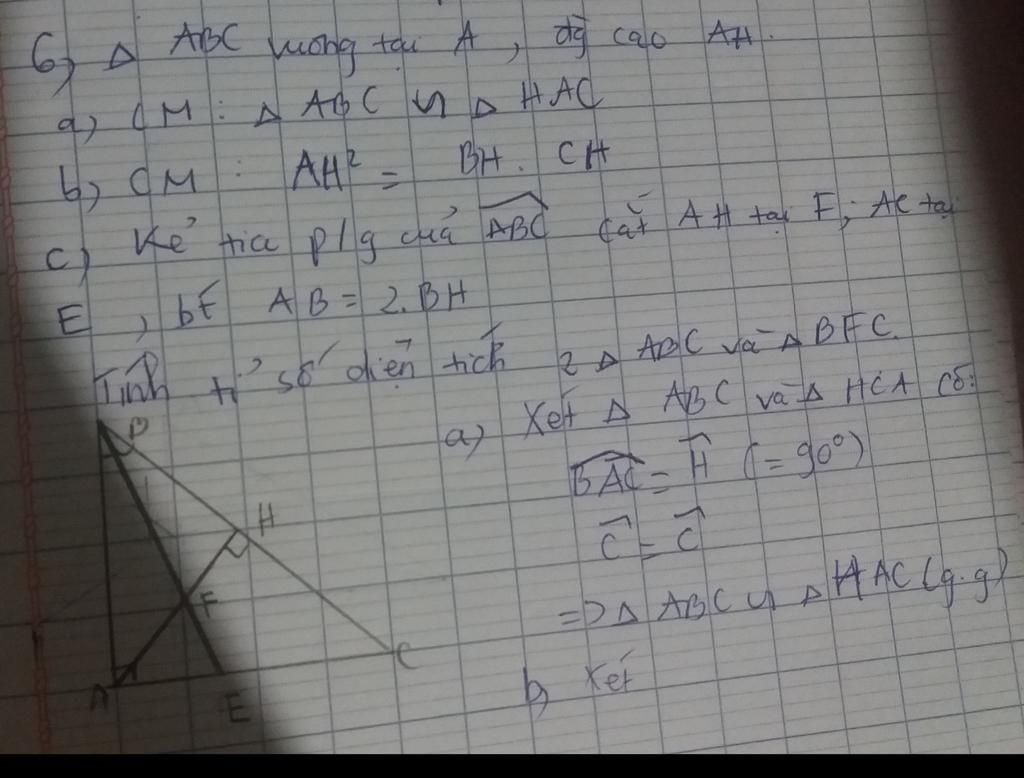 6) Δ ABC vuông tại A, đg cao AH.
a) CM : Δ ABC ∽ Δ HAC
b) CM : AH² = BH. CH
c) Kẻ tia p/g của ABC cắt AH tại F; AC tại
E, bt AB = 2.BH
Tính tỉ số diện tích 2 Δ ABC và Δ BFC.
a) Xét Δ ABC và Δ HCA có:
BAC = H (= 90°)
C = C
=> Δ ABC ∽ Δ HAC (g.g)
b, Xét
B
H
F
C
A
E